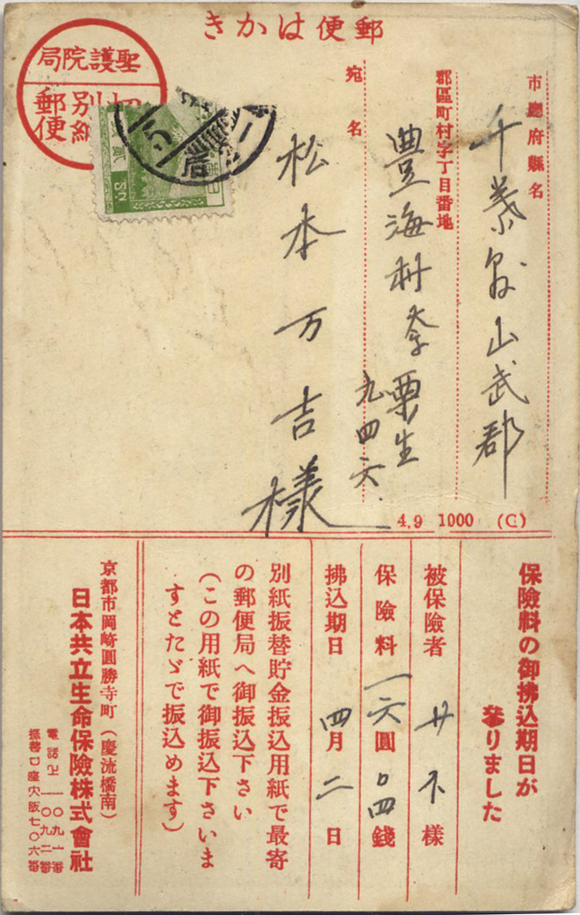 郵便はかき
聖護院局
切
別納
郵便
市廳府縣名
千葉縣山武郡
郡區町村字丁目番地
豊海村字粟生
九四六
宛名
松本万吉様
4.9 1000 (C)
保險料の御拂込期日が
參りました
被保險者 様
保險料 一六圓〇四錢
拂込期日 四月二日
別紙振替貯金振込用紙で最寄
の郵便局へ御振込下さい
(この用紙で御振込下さいま
すとたゞで振込めます)
京都市岡崎圓勝寺町(慶流橋南)
日本共立生命保險株式會社